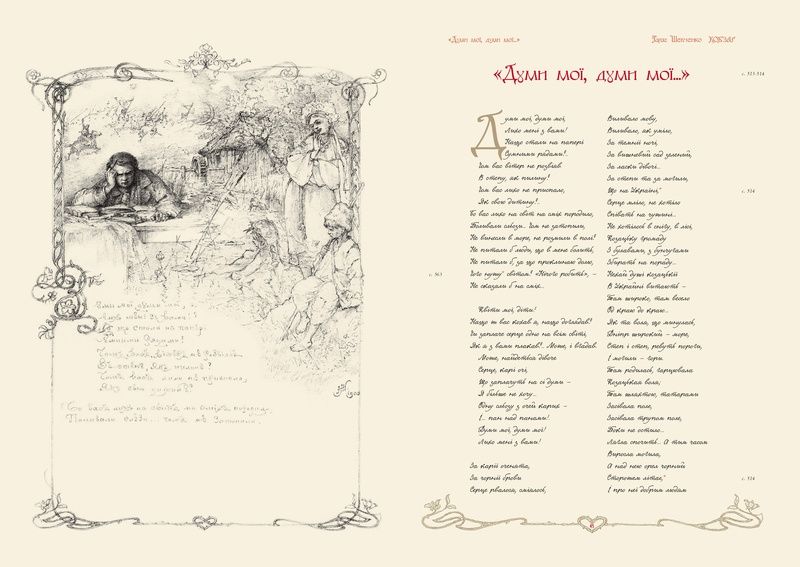 Думи мої, думи мої
Лихо мені з вами!
стали на папері
1900
«Думи мої, думи мої...»
Тарас Шевченко КОБЗАР
«Думи мої, думи мої...»
с. 513-514
Думи мої, думи мої,
Лихо мені з вами!
Нащо стали на папері
Сумними рядами!..
Чом вас вітер не розвіяв
В степу, як пилину?
Чом вас лихо не приспало,
Як свою дитину?..
Бо вас лихо на світ на сміх породило,
Поливали сльози... Чом не затопили,
Не винесли в море, не розмили в полі?
Не питали б люди, що в мене болить,
Не питали б, за що проклинаю долю,
Чого нужу світом? «Нічого робить», –
Не сказали б на сміх...
с. 563
Квіти мої, діти!
Нащо ж вас кохав я, нащо доглядав?
Чи заплаче серце одно на всім світі,
Як я з вами плакав?.. Може, і вгадав.
Може, найдеться дівоче
Серце, карі очі,
Що заплачуть на сі думи –
Я більше не хочу...
Одну сльозу з очей карих –
І... пан над панами!
Думи мої, думи мої!
Лихо мені з вами!
За карії оченята,
За чорнії брови
Серце рвалося, сміялось,
Виливало мову,
Виливало, як уміло,
За темнії ночі,
За вишневий сад зелений,
За ласки дівочі...
За степи та за могили,
Що на Україні,
с. 514
Серце мліло, не хотіло
Співать на чужині...
Не хотілось в снігу, в лісі,
Козацьку громаду
З булавами, з бунчугами
Збирать на пораду...
Нехай душі козацькії
В Украйні витають –
Там широко, там весело
Од краю до краю...
Як та воля, що минулась,
Дніпр широкий – море,
Степ і степ, ревуть пороги,
І могили – гори.
Там родилась, гарцювала
Козацькая воля;
Там шляхтою, татарами
Засівала поле,
Засівала трупом поле,
Поки не остило...
Лягла спочить... А тим часом
Виросла могила,
А над нею орел чорний
Сторожем літає,
с. 514
І про неї добрим людям
6